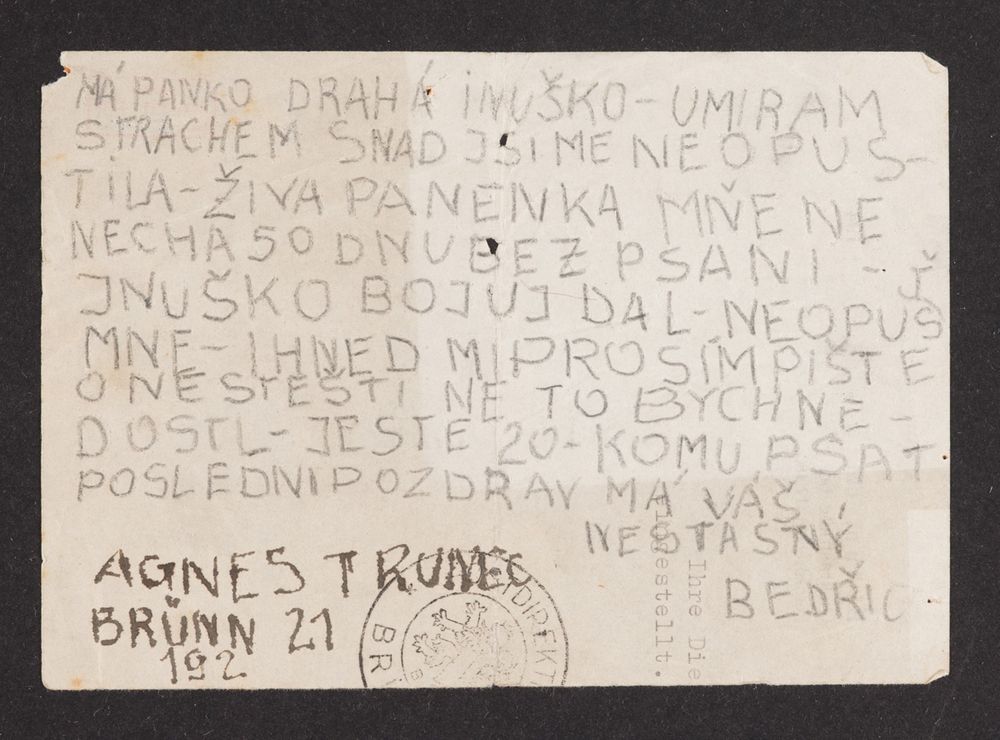 MÁ PANKO DRAHÁ INUŠKO - UMIRAM
STRACHEM SNAD JSI ME NEOPUS-
TILA - ŽIVA PANENKA MŇE NE
NECHA 50 DNU BEZ PSANI -
JNUŠKO BOJUJ DAL - NEOPUS
MNE - IHNED MI PROSIM PIŠTE
O NESTEŠTI NE TO BYCH NE-
DOSTL - JESTE 20 - KOMU PSAT
POSLEDNI POZDRAV MÁ VÁŠ
NEŠTASNÝ
BEDŘIC
AGNES TRUNEC
BRÜNN 21
192
BR
DIREKTI
Ihre Die
estellt.